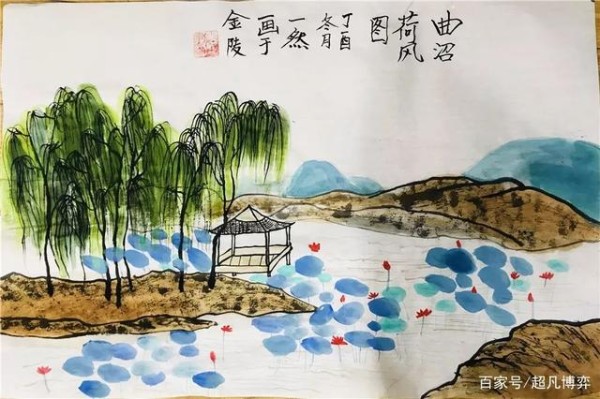 曲沼
荷风
图
丁酉
冬月
一然
画于
金陵
百家号/超凡博弈